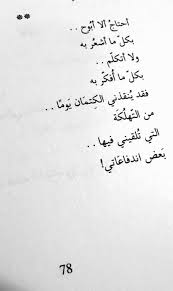 **
أحتاجُ ألا أبُوح ..
بكلّ ما أشعُر به
ولا أتكلّم ..
بكلّ ما أُفكّر به
فقد يُنقذني الكِتمان يَومًا ..
من التّهلُكَة
التي تُلقيني فيها ..
بَعض اندفاعَاتي!
78